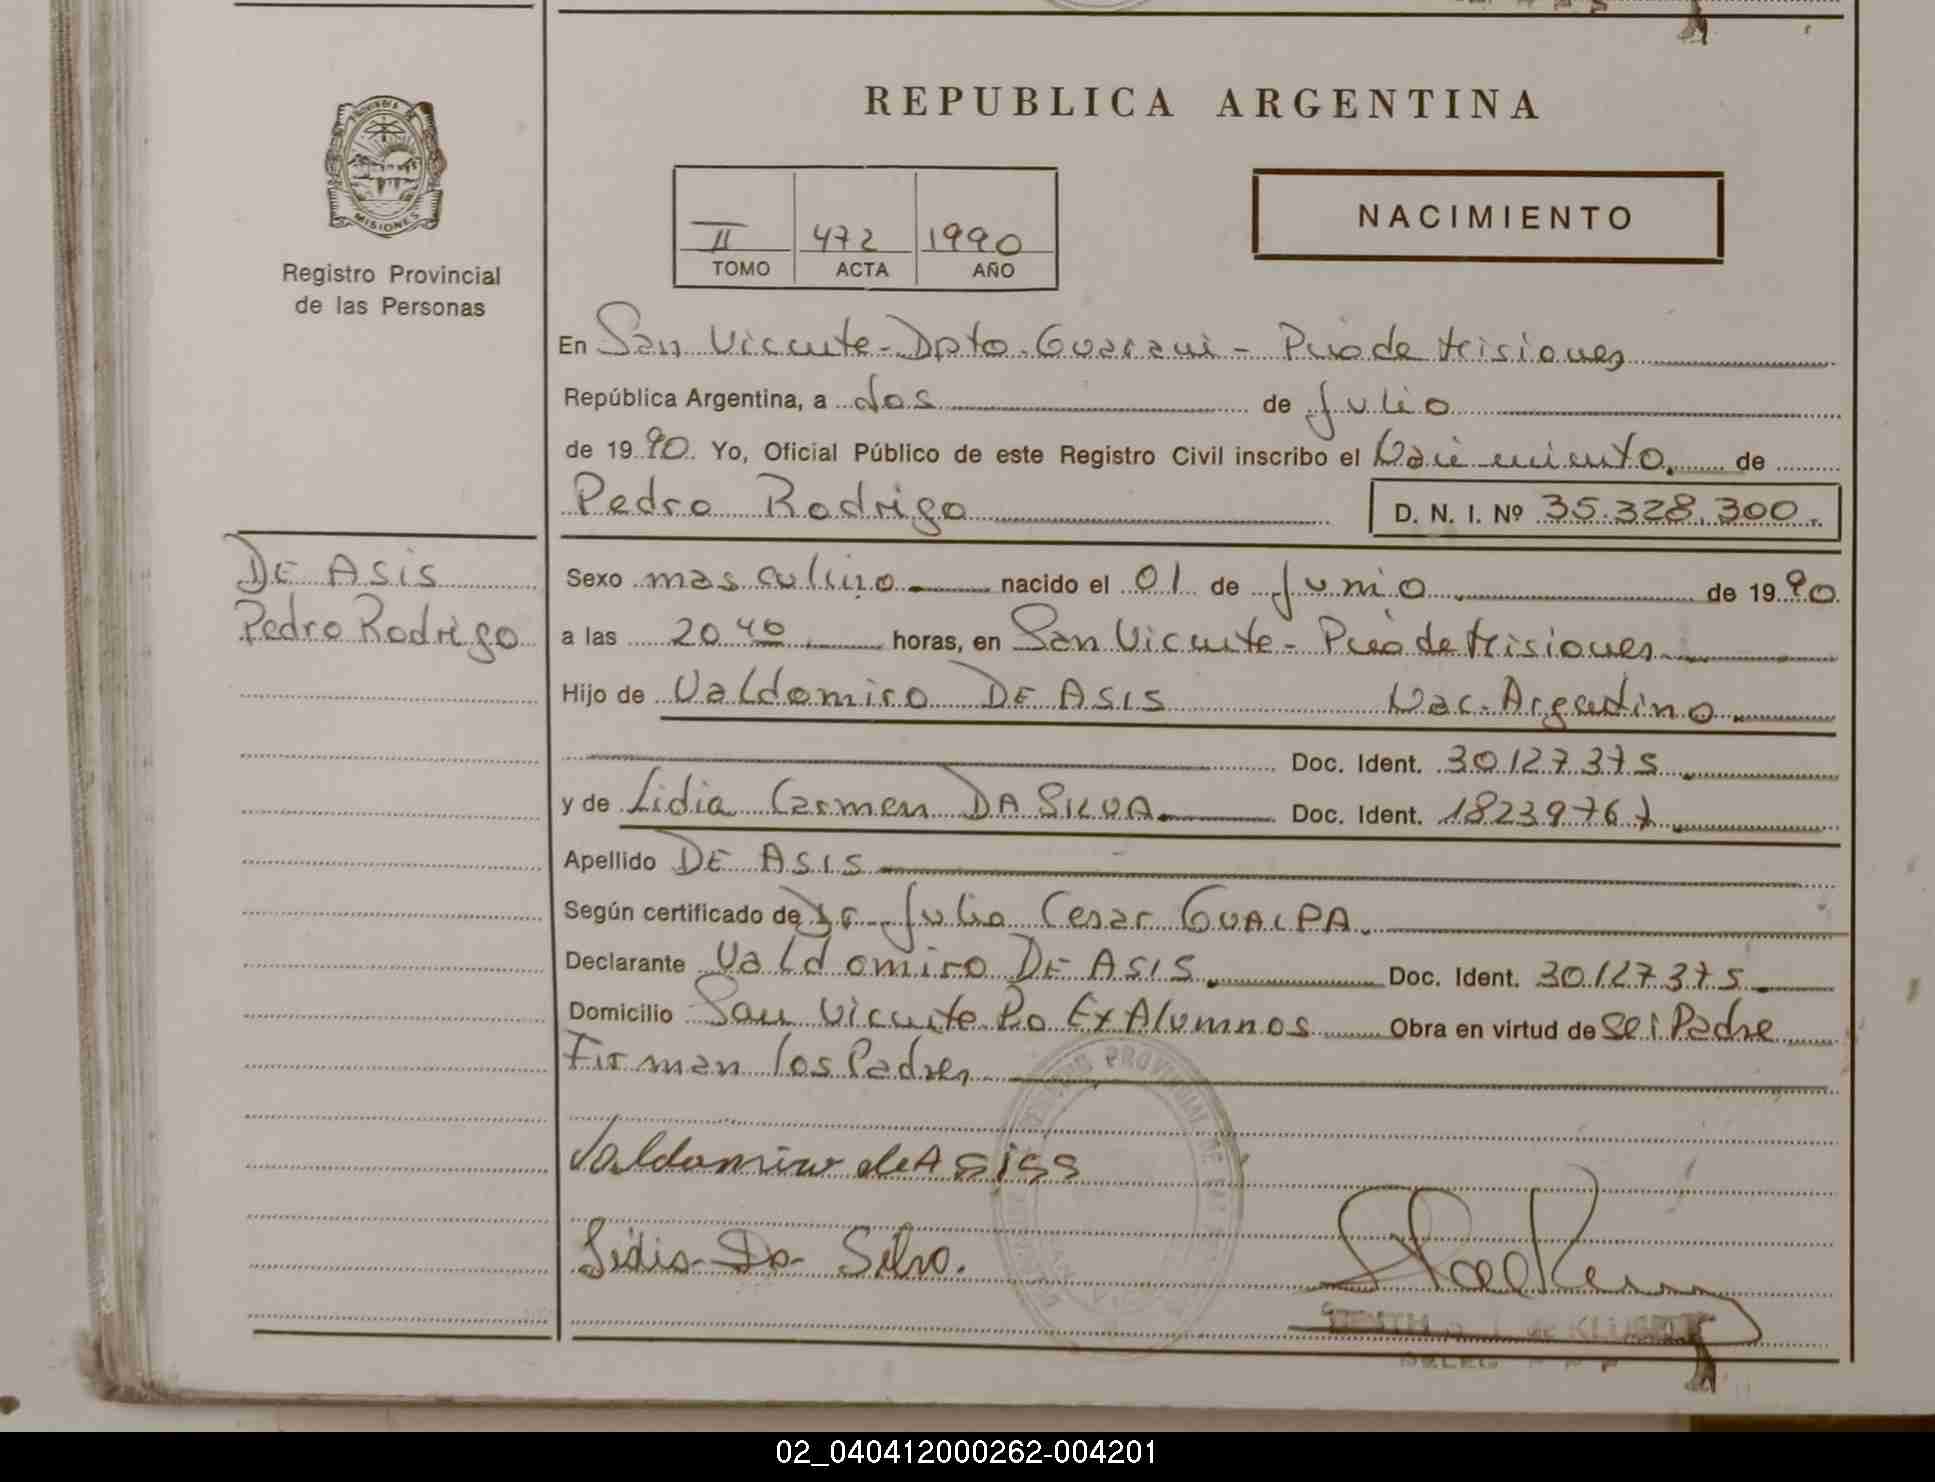 REPUBLICA ARGENTINA
PROVINCIA DE
MISIONES
Registro Provincial
de las Personas
II 472 1990
TOMO ACTA AÑO
NACIMIENTO
En San Vicente - Dpto. Guarani - Pcia de Misiones
República Argentina, a dos de Julio
de 1990. Yo, Oficial Público de este Registro Civil inscribo el Nacimiento. de
Pedro Rodrigo
D. N. I. Nº 35.328.300.
DE ASIS
Pedro Rodrigo
Sexo masculino nacido el 01 de Junio de 1990
a las 20.40 horas, en San Vicente - Pcia de Misiones
Hijo de Valdomiro DE ASIS Nac. Argentino
Doc. Ident. 30127375
y de Lidia Carmen DA SILVA. Doc. Ident. 18239767
Apellido DE ASIS
Según certificado de Dr. Julio Cesar GUALPA.
Declarante Valdomiro DE ASIS Doc. Ident. 30127375
Domicilio San Vicente Bo Ex Alumnos Obra en virtud de ser Padre
Firman los Padres
Valdomiro de Asiss
Lidia Da Silva.
REGISTRO PROVINCIAL DE LAS
de KLUG
02_040412000262-004201